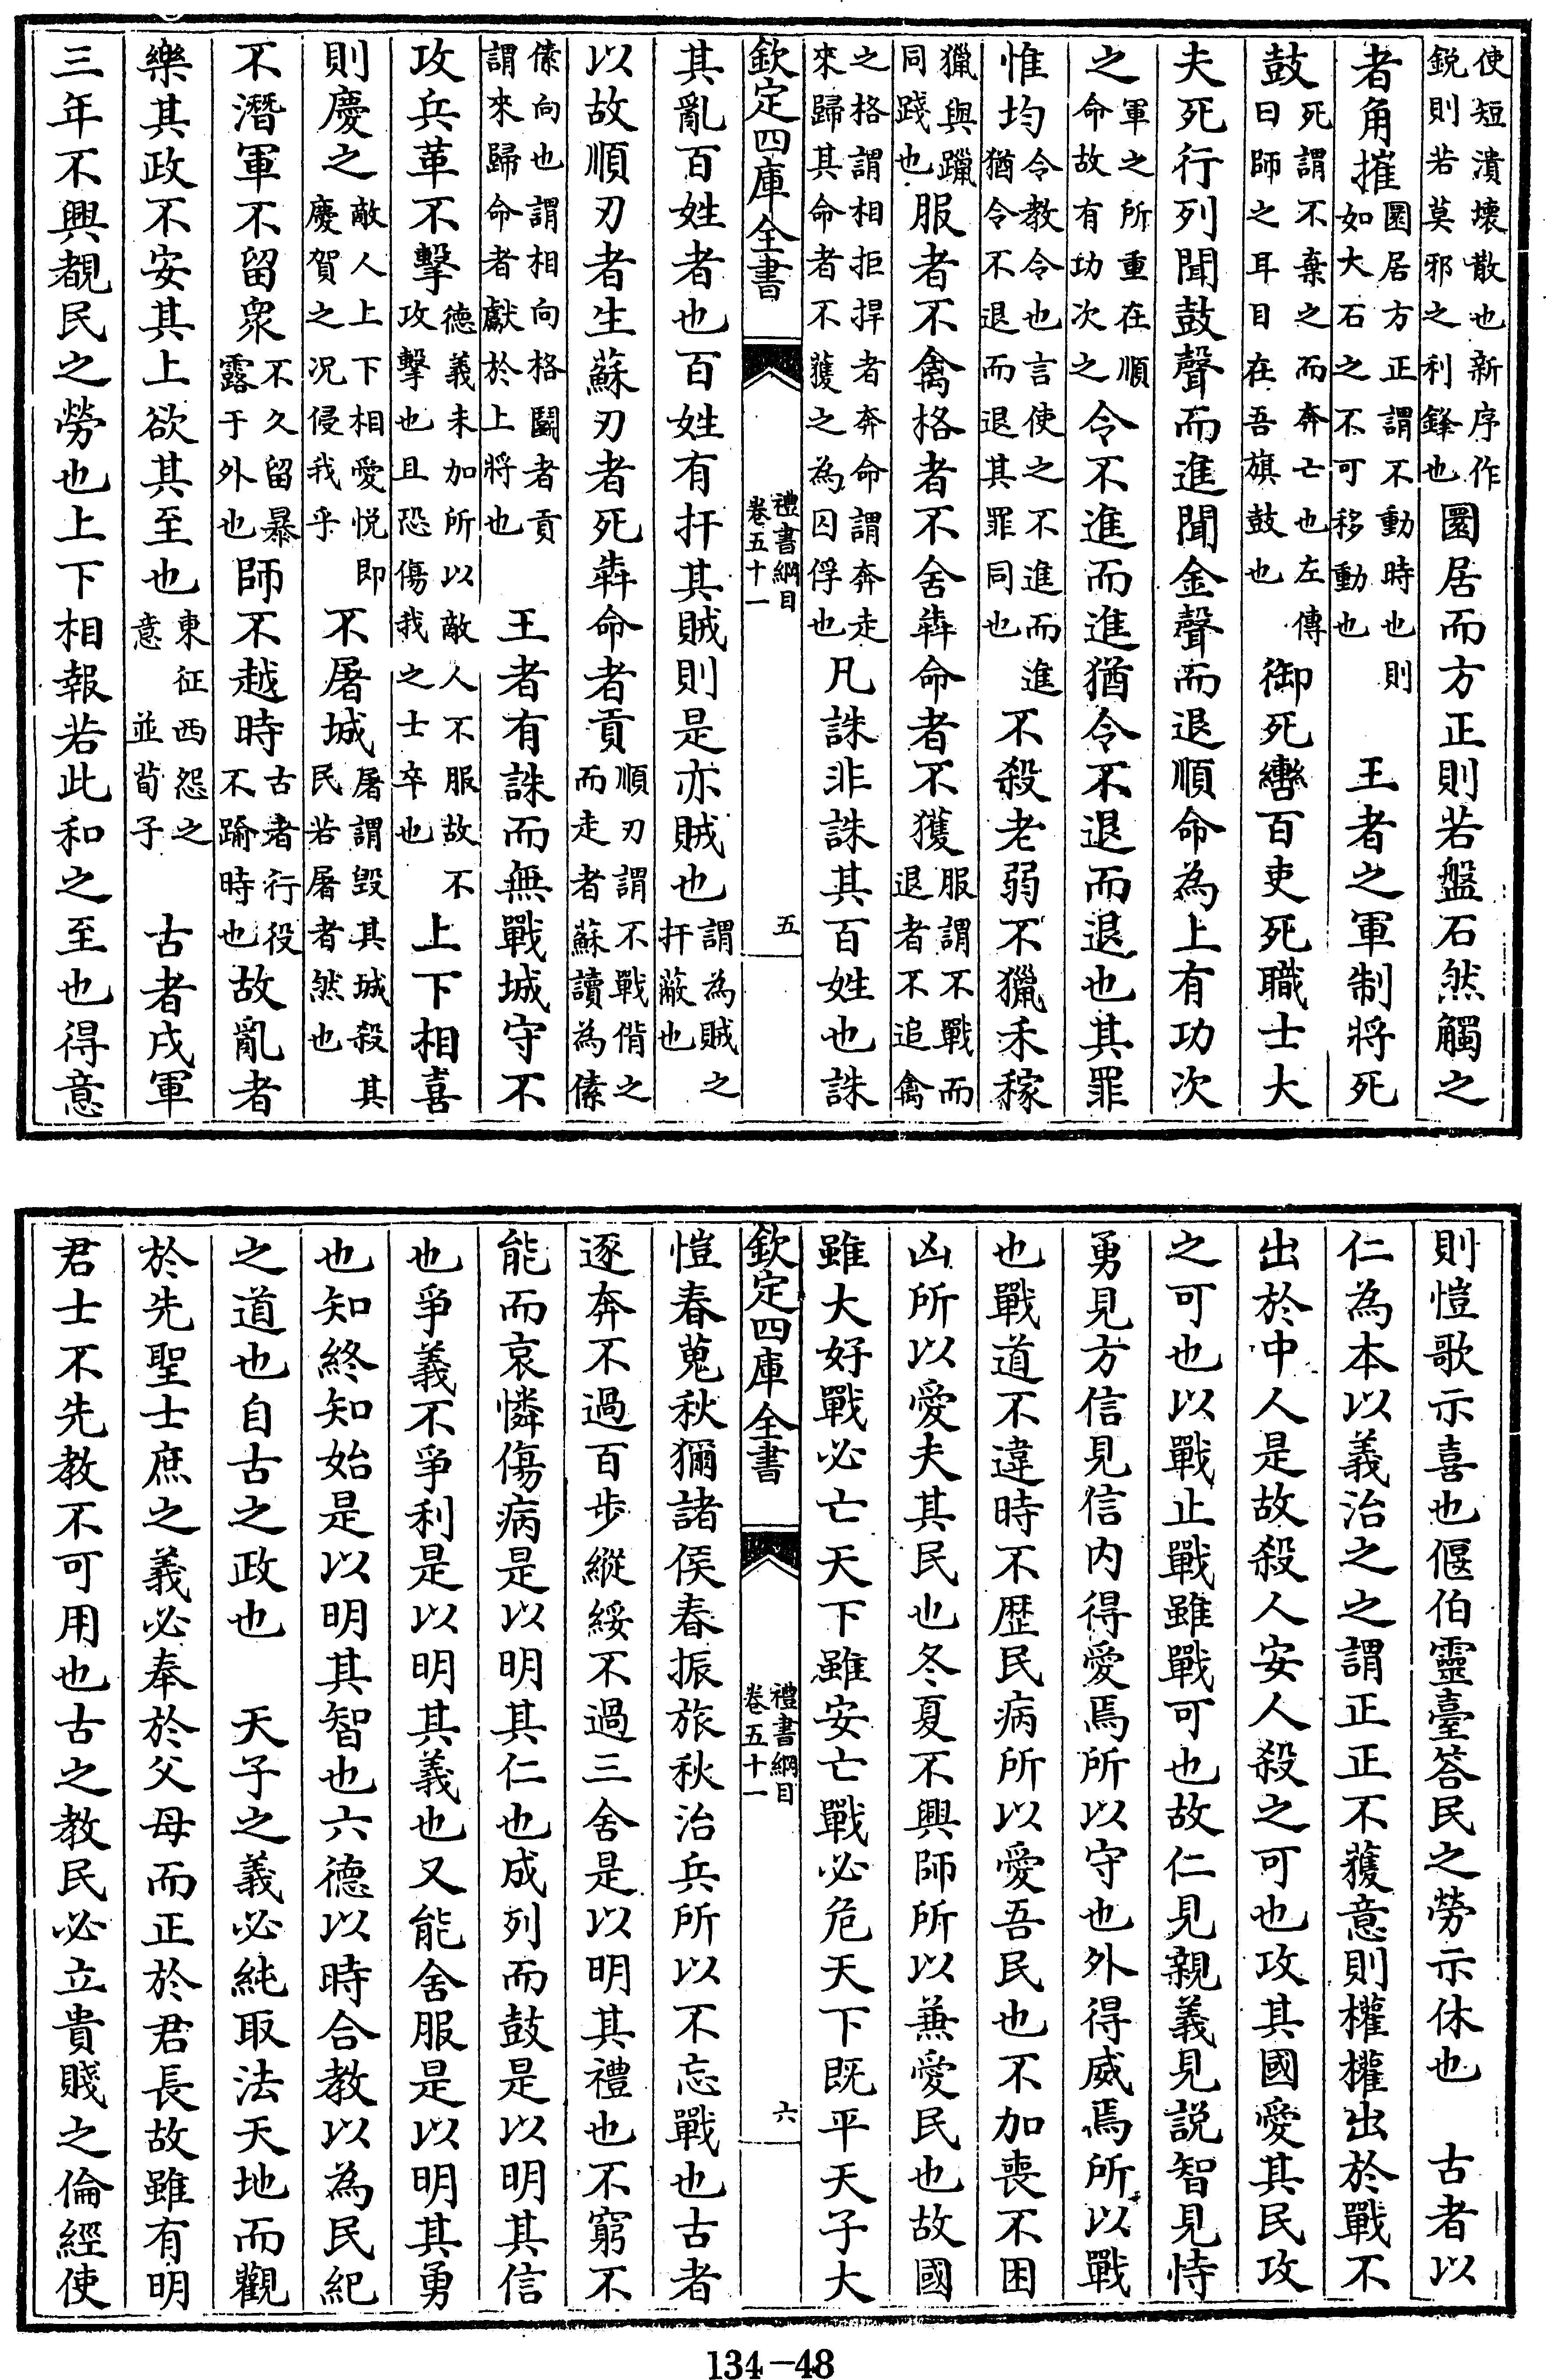 使短潰壞散也新序作鋭則若莫邪之利鋒也圜居而方正則若盤石然觸之
者角摧圜居方正謂不動時也則如大石之不可移動也　王者之軍制將死
鼓死謂不棄之而奔亡也左傳曰師之耳目在吾旗鼓也御死轡百吏死職士大
夫死行列聞鼓聲而進聞金聲而退順命為上有功次
之軍之所重在順命故有功次之令不進而進猶令不退而退也其罪
惟均令教令也言使之不進而進猶令不退而退其罪同也不殺老弱不獵禾稼
獵與躐同踐也服者不禽格者不舍犇命者不獲服謂不戰而退者不追禽
之格謂相拒捍者奔命謂奔走來歸其命者不獲之為囚俘也凡誅非誅其百姓也誅
欽定四庫全書　禮書綱目卷五十一　五
其亂百姓者也百姓有扞其賊則是亦賊也謂為賊之扞蔽也
以故順刃者生蘇刃者死犇命者貢順刃謂不戰偝之而走者蘇讀為傃
傃向也謂相向格鬬者貢謂來歸命者獻於上將也　王者有誅而無戰城守不
攻兵革不擊德義未加所以敵人不服故不攻擊也且恐傷我之士卒也上下相喜
則慶之敵人上下相愛悦即慶賀之况侵我乎不屠城屠謂毀其城殺其民若屠者然也
不潛軍不留衆不久留暴露于外也師不越時古者行役不踰時也故亂者
樂其政不安其上欲其至也東征西怨之意　並荀子　古者戍軍
三年不興覩民之勞也上下相報若此和之至也得意
則愷歌示喜也偃伯靈臺答民之勞示休也　古者以
仁為本以義治之之謂正正不獲意則權權出於戰不
出於中人是故殺人安人殺之可也攻其國愛其民攻
之可也以戰止戰雖戰可也故仁見親義見説智見恃
勇見方信見信内得愛焉所以守也外得威焉所以戰
也戰道不違時不歴民病所以愛吾民也不加喪不因
凶所以愛夫其民也冬夏不興師所以兼愛民也故國
雖大好戰必亡天下雖安亡戰必危天下既平天子大
欽定四庫全書　禮書綱目卷五十一　六
愷春蒐秋獮諸侯春振旅秋治兵所以不忘戰也古者
逐奔不過百步縱綏不過三舍是以明其禮也不窮不
能而哀憐傷病是以明其仁也成列而鼓是以明其信
也爭義不爭利是以明其義也又能舍服是以明其勇
也知終知始是以明其智也六德以時合教以為民紀
之道也自古之政也　天子之義必純取法天地而觀
於先聖士庶之義必奉於父母而正於君長故雖有明
君士不先教不可用也古之教民必立貴賤之倫經使
134-48